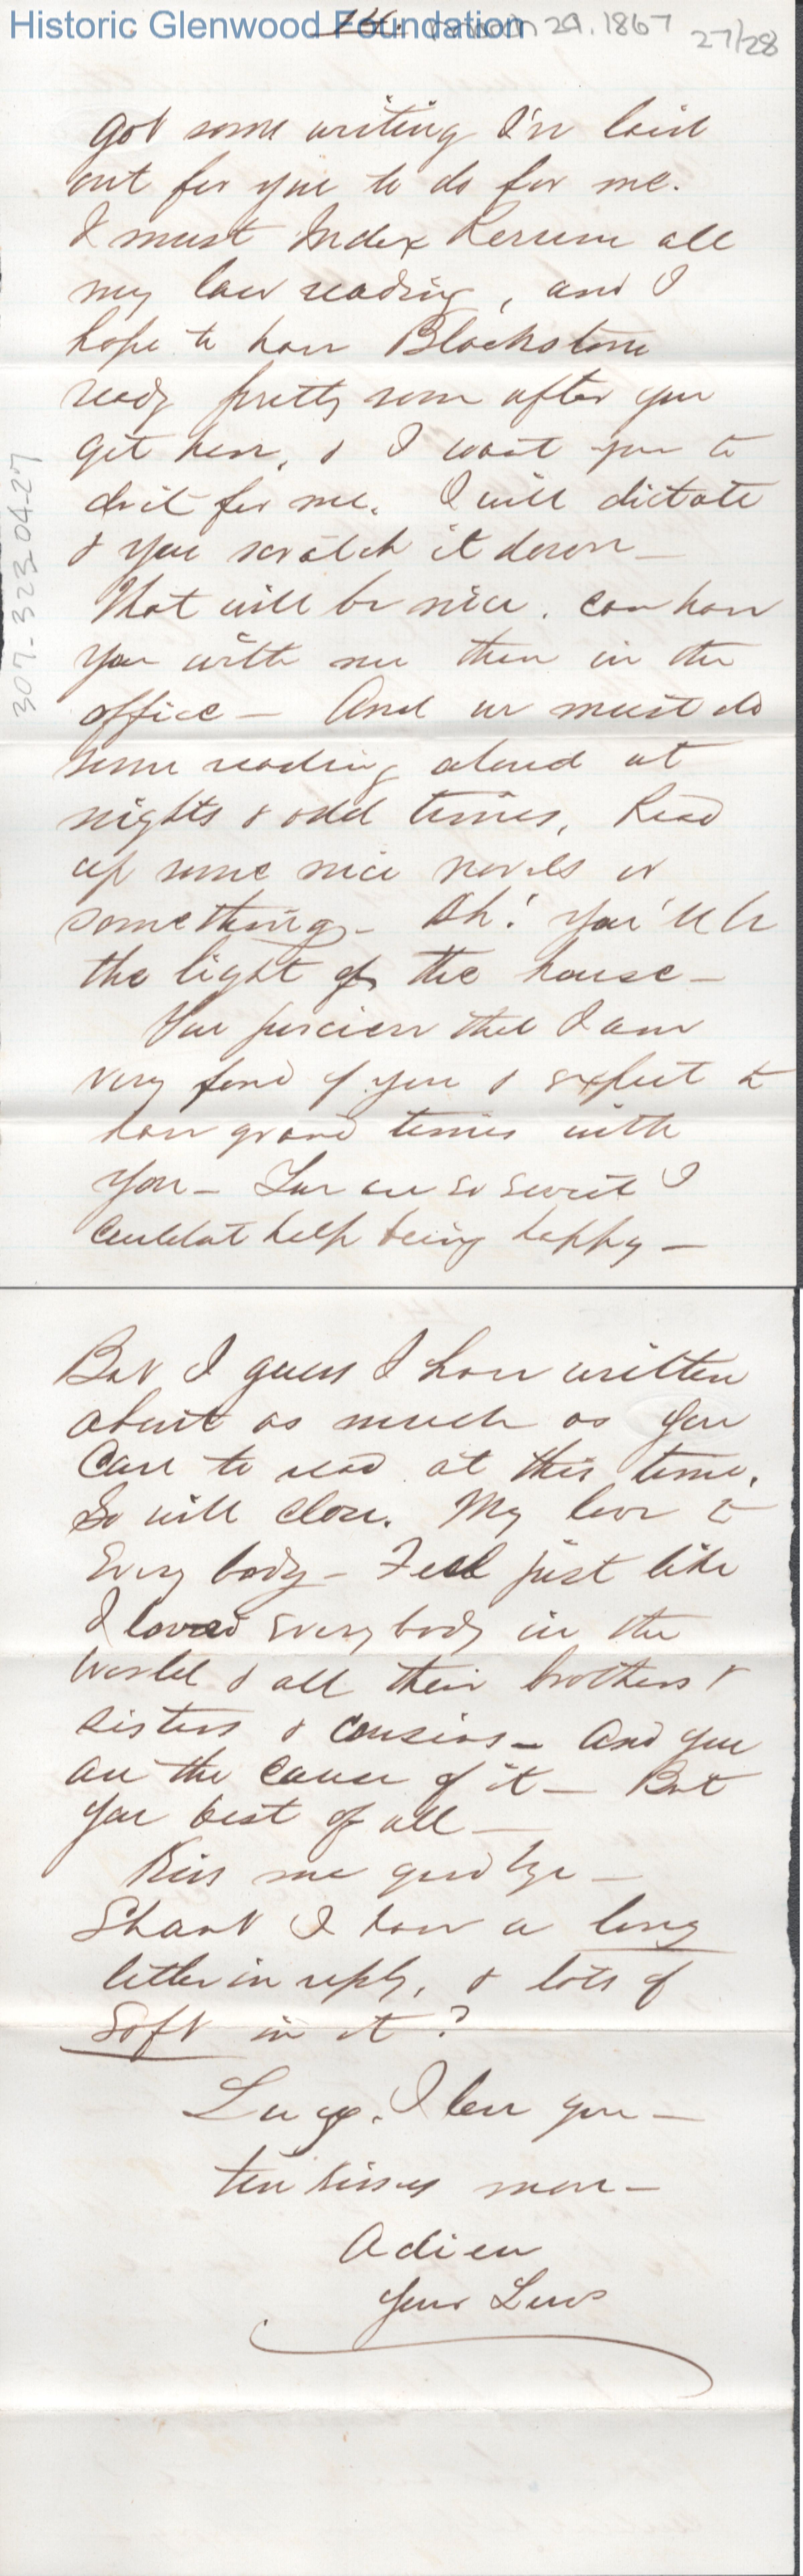 Historic Glenwood Foundation
14. March 29. 1867 27/28
307-323-04-27
got some writing I've laid
out for you to do for me.
I must Index Rerum all
my law reading, and I
hope to have Blackstone
ready pretty soon after you
get here, & I want you to
do it for me. I will dictate
& you scratch it down —
That will be nice. Can have
you with me then in the
office — And we must do
some reading aloud at
nights & odd times, Read
up some nice novels or
something — Oh! You'll be
the light of the house —
You perceive that I am
very fond of you & expect to
have grand times with
you — You are so sweet I
couldnt help being happy —
But I guess I have written
about as much as you
care to read at this time.
So will close. My love to
Every body — Feel just like
I loved every body in the
world & all their brothers &
sisters & cousins — And you
are the cause of it — But
you best of all —
Kiss me good bye —
Shant I have a long
letter in reply, & lots of
soft in it?
I love you —
ten kisses more —
Adieu
Your